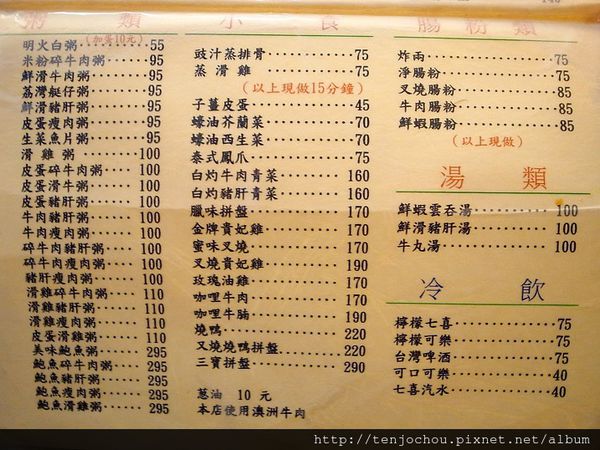 粥類
(加蛋10元)
明火白粥 55
米粉碎牛肉粥 95
鮮滑牛肉粥 95
荔灣艇仔粥 95
鮮滑豬肝粥 95
皮蛋瘦肉粥 95
生菜魚片粥 95
滑雞粥 100
皮蛋碎牛肉粥 100
皮蛋滑牛粥 100
皮蛋豬肝粥 100
牛肉豬肝粥 100
牛肉瘦肉粥 100
碎牛肉豬肝粥 100
碎牛肉瘦肉粥 100
豬肝瘦肉粥 100
滑雞碎牛肉粥 110
滑雞豬肝粥 110
滑雞瘦肉粥 110
皮蛋滑雞粥 110
美味鮑魚粥 295
鮑魚碎牛肉粥 295
鮑魚豬肝粥 295
鮑魚瘦肉粥 295
鮑魚滑雞粥 295
小食
豉汁蒸排骨 75
蒸滑雞 75
(以上現做15分鐘)
子薑皮蛋 45
蠔油芥蘭菜 70
蠔油西生菜 70
泰式鳳爪 75
白灼牛肉青菜 160
白灼豬肝青菜 160
臘味拼盤 170
金牌貴妃雞 170
蜜味叉燒 170
叉燒貴妃雞 190
玫瑰油雞 170
咖哩牛肉 170
咖哩牛腩 190
燒鴨 220
叉燒燒鴨拼盤 220
三寶拼盤 290
蔥油 10 元
本店使用澳洲牛肉
腸粉類
炸兩 75
淨腸粉 75
叉燒腸粉 85
牛肉腸粉 85
鮮蝦腸粉 85
(以上現做)
湯類
鮮蝦雲吞湯 100
鮮滑豬肝湯 100
牛丸湯 100
冷飲
檸檬七喜 75
檸檬可樂 75
台灣啤酒 75
可口可樂 40
七喜汽水 40
http://tenjochou.pixnet.net/album